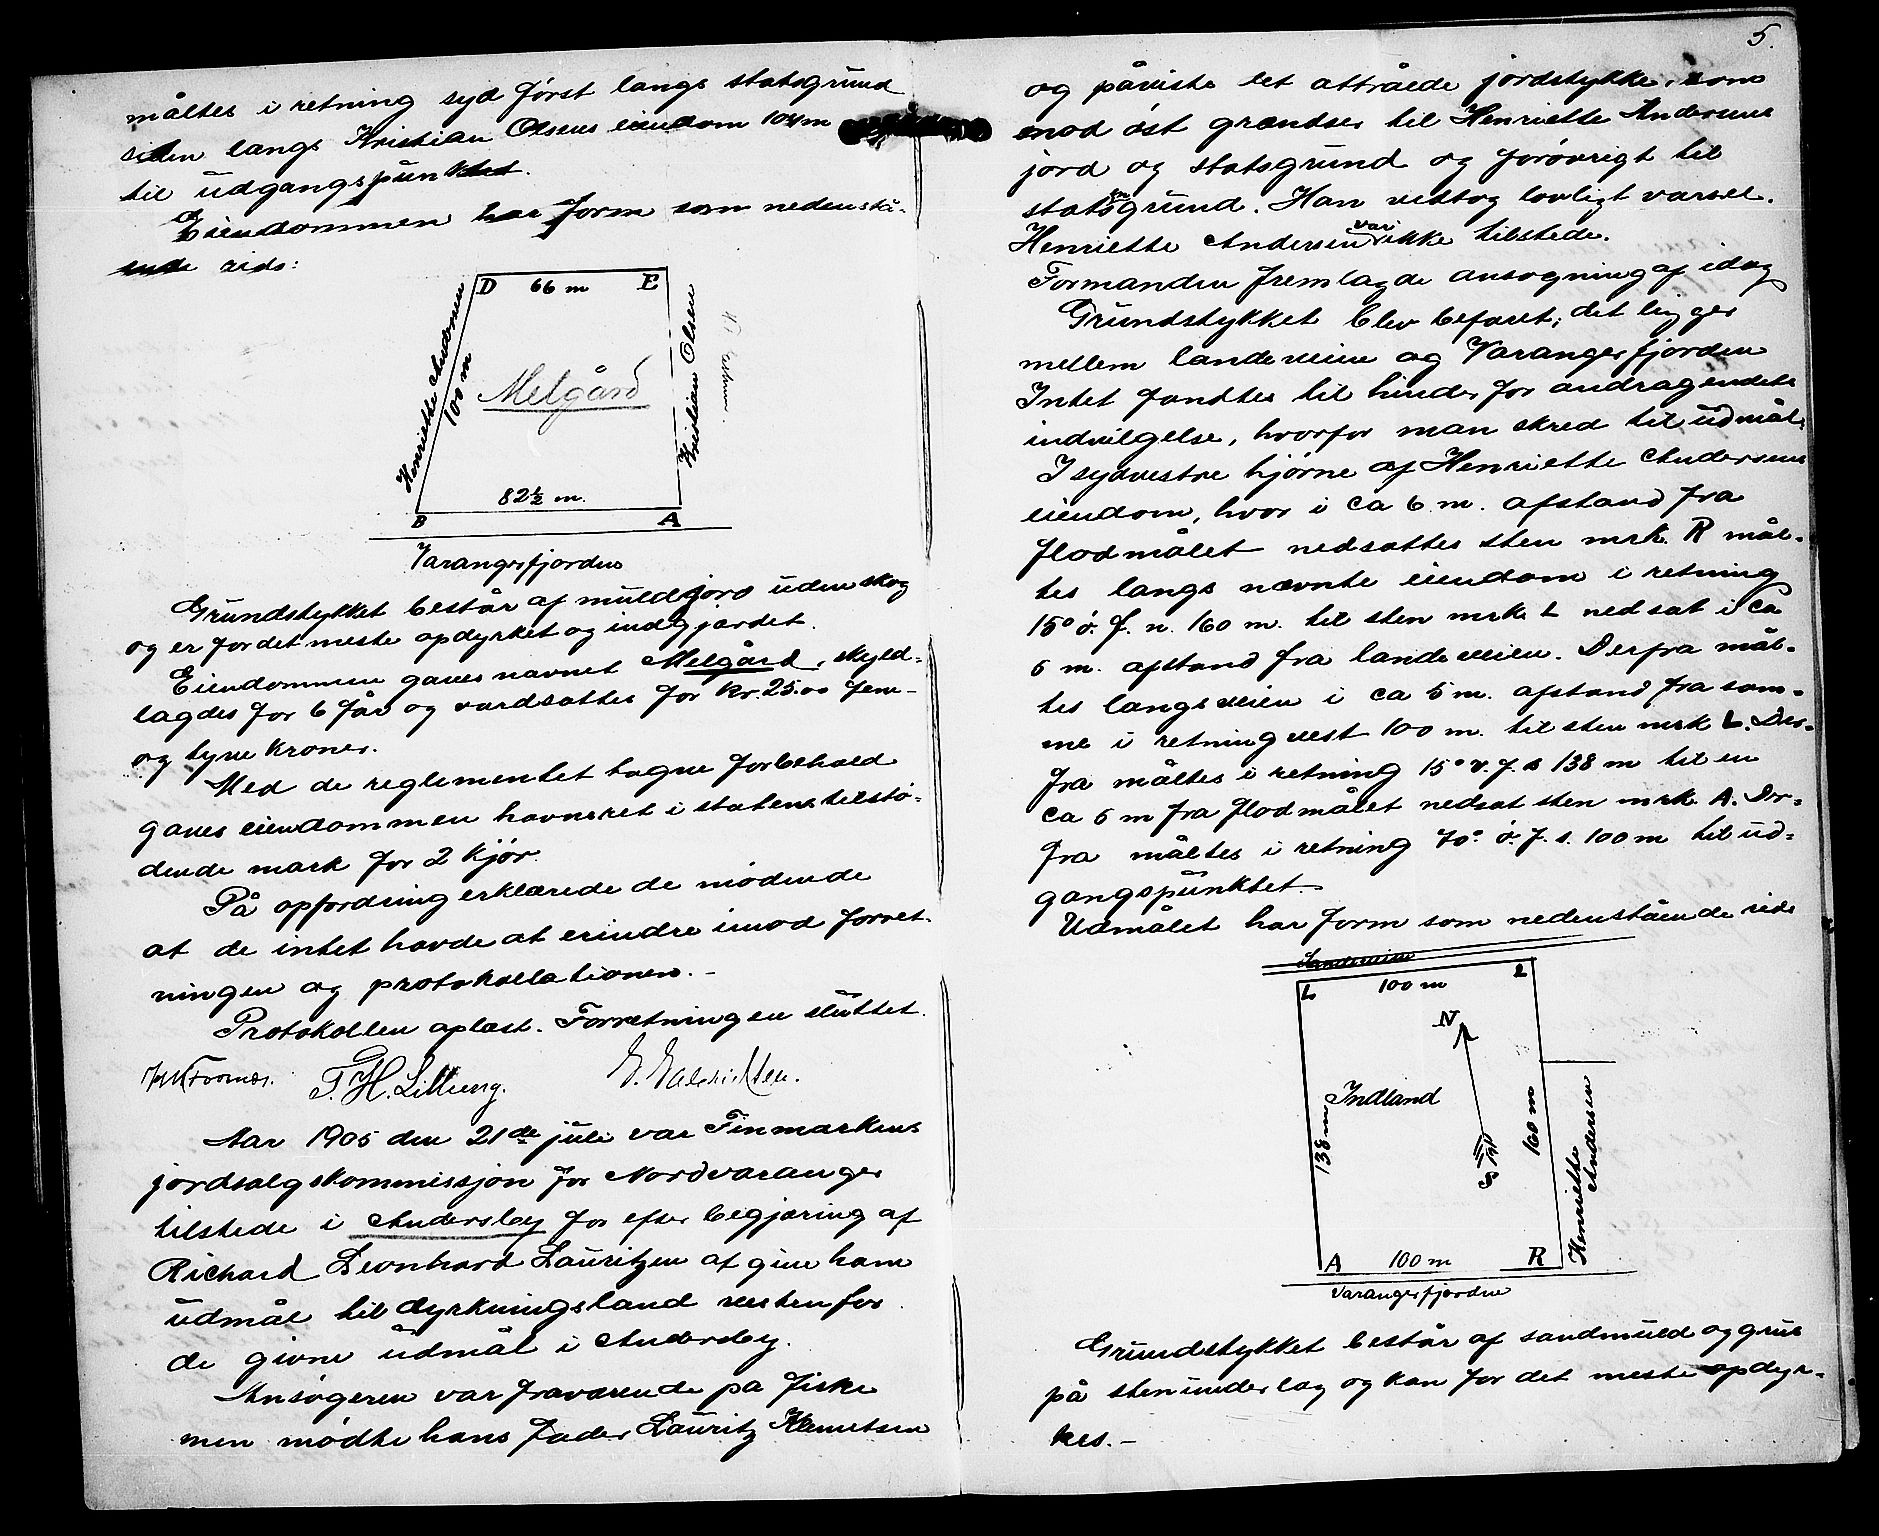 måltes i retning syd først langs statsgrund
siden langs Kristian Olsens eiendom 104 m
til udgangspunktet.
Eiendommen har form som nedenstå-
ende rids:
D 66 m E
Henriette Andersen
100 m
Melgård
Kristian Olsen
82½ m.
B A
Varangerfjorden
Grundstykket består af muldjord uden skog
og er for det meste opdyrket og indgjærdet.
Eiendommen gaves navnet Melgård, skyld-
lagdes for 6 før og værdsattes for kr. 25.00 fem-
og tyve kroner.
Med de reglementet tagne forbehold
gaves eiendommen havneret i statens tilstø-
dende mark for 2 kjør.
På opfordring erklærede de mødende
at de intet havde at erindre imod forret-
ningen og protokollationen. -
Protokollen oplæst. Forretningen sluttet.
T. H. Lilleeng.
Aar 1905 den 21de juli var Finmarkens
jordsalgskommissjon for Nordvaranger
tilstede i Andersby for efter begjæring af
Richard Leonhard Lauritzen at give ham
udmål til dyrkningsland vestenfor
de givne udmål i Andersby.
Ansøgeren var fraværende på fiske
men mødte hans fader Lauritz Klemetsen
5.
og påviste det attråede jordstykke, som
mod øst grændser til Henriette Andersens
jord og statsgrund og forøvrigt til
statsgrund. Han vedtog lovligt varsel.
Henriette Andersen var ikke tilstede.
Formanden fremlagde ansøgning af idag
Grundstykket blev befaret; det ligger
mellem landeveien og Varangerfjorden
Intet fandtes til hinder for andragendets
indvilgelse, hvorfor man skred til udmål.
I sydvestre hjørne af Henriette Andersens
eiendom, hvor i ca 6 m. afstand fra
flodmålet nedsattes sten mrk. R mål-
tes langs nævnte eiendom i retning
15° ø. f. n. 160 m. til sten mrk. L nedsat i ca
5 m. afstand fra landeveien. Derfra mål-
tes langs veien i ca 5 m. afstand fra sam-
me i retning vest 100 m. til sten mrk L. Der-
fra måltes i retning 15° v. f. s 138 m til en
ca 6 m fra flodmålet nedsat sten mrk. A. Der-
fra måltes i retning 70° ø. f. s. 100 m til ud-
gangspunktet. -
Udmålet har form som nedenstående rids
Landeveien
L 100 m L
N
Indland
138 m
160 m
Henriette
Andersen
A 100 m R
Varangerfjorden
Grundstykket består af sandmuld og grus
på stenunderlag og kan for det meste opdyr-
kes. -